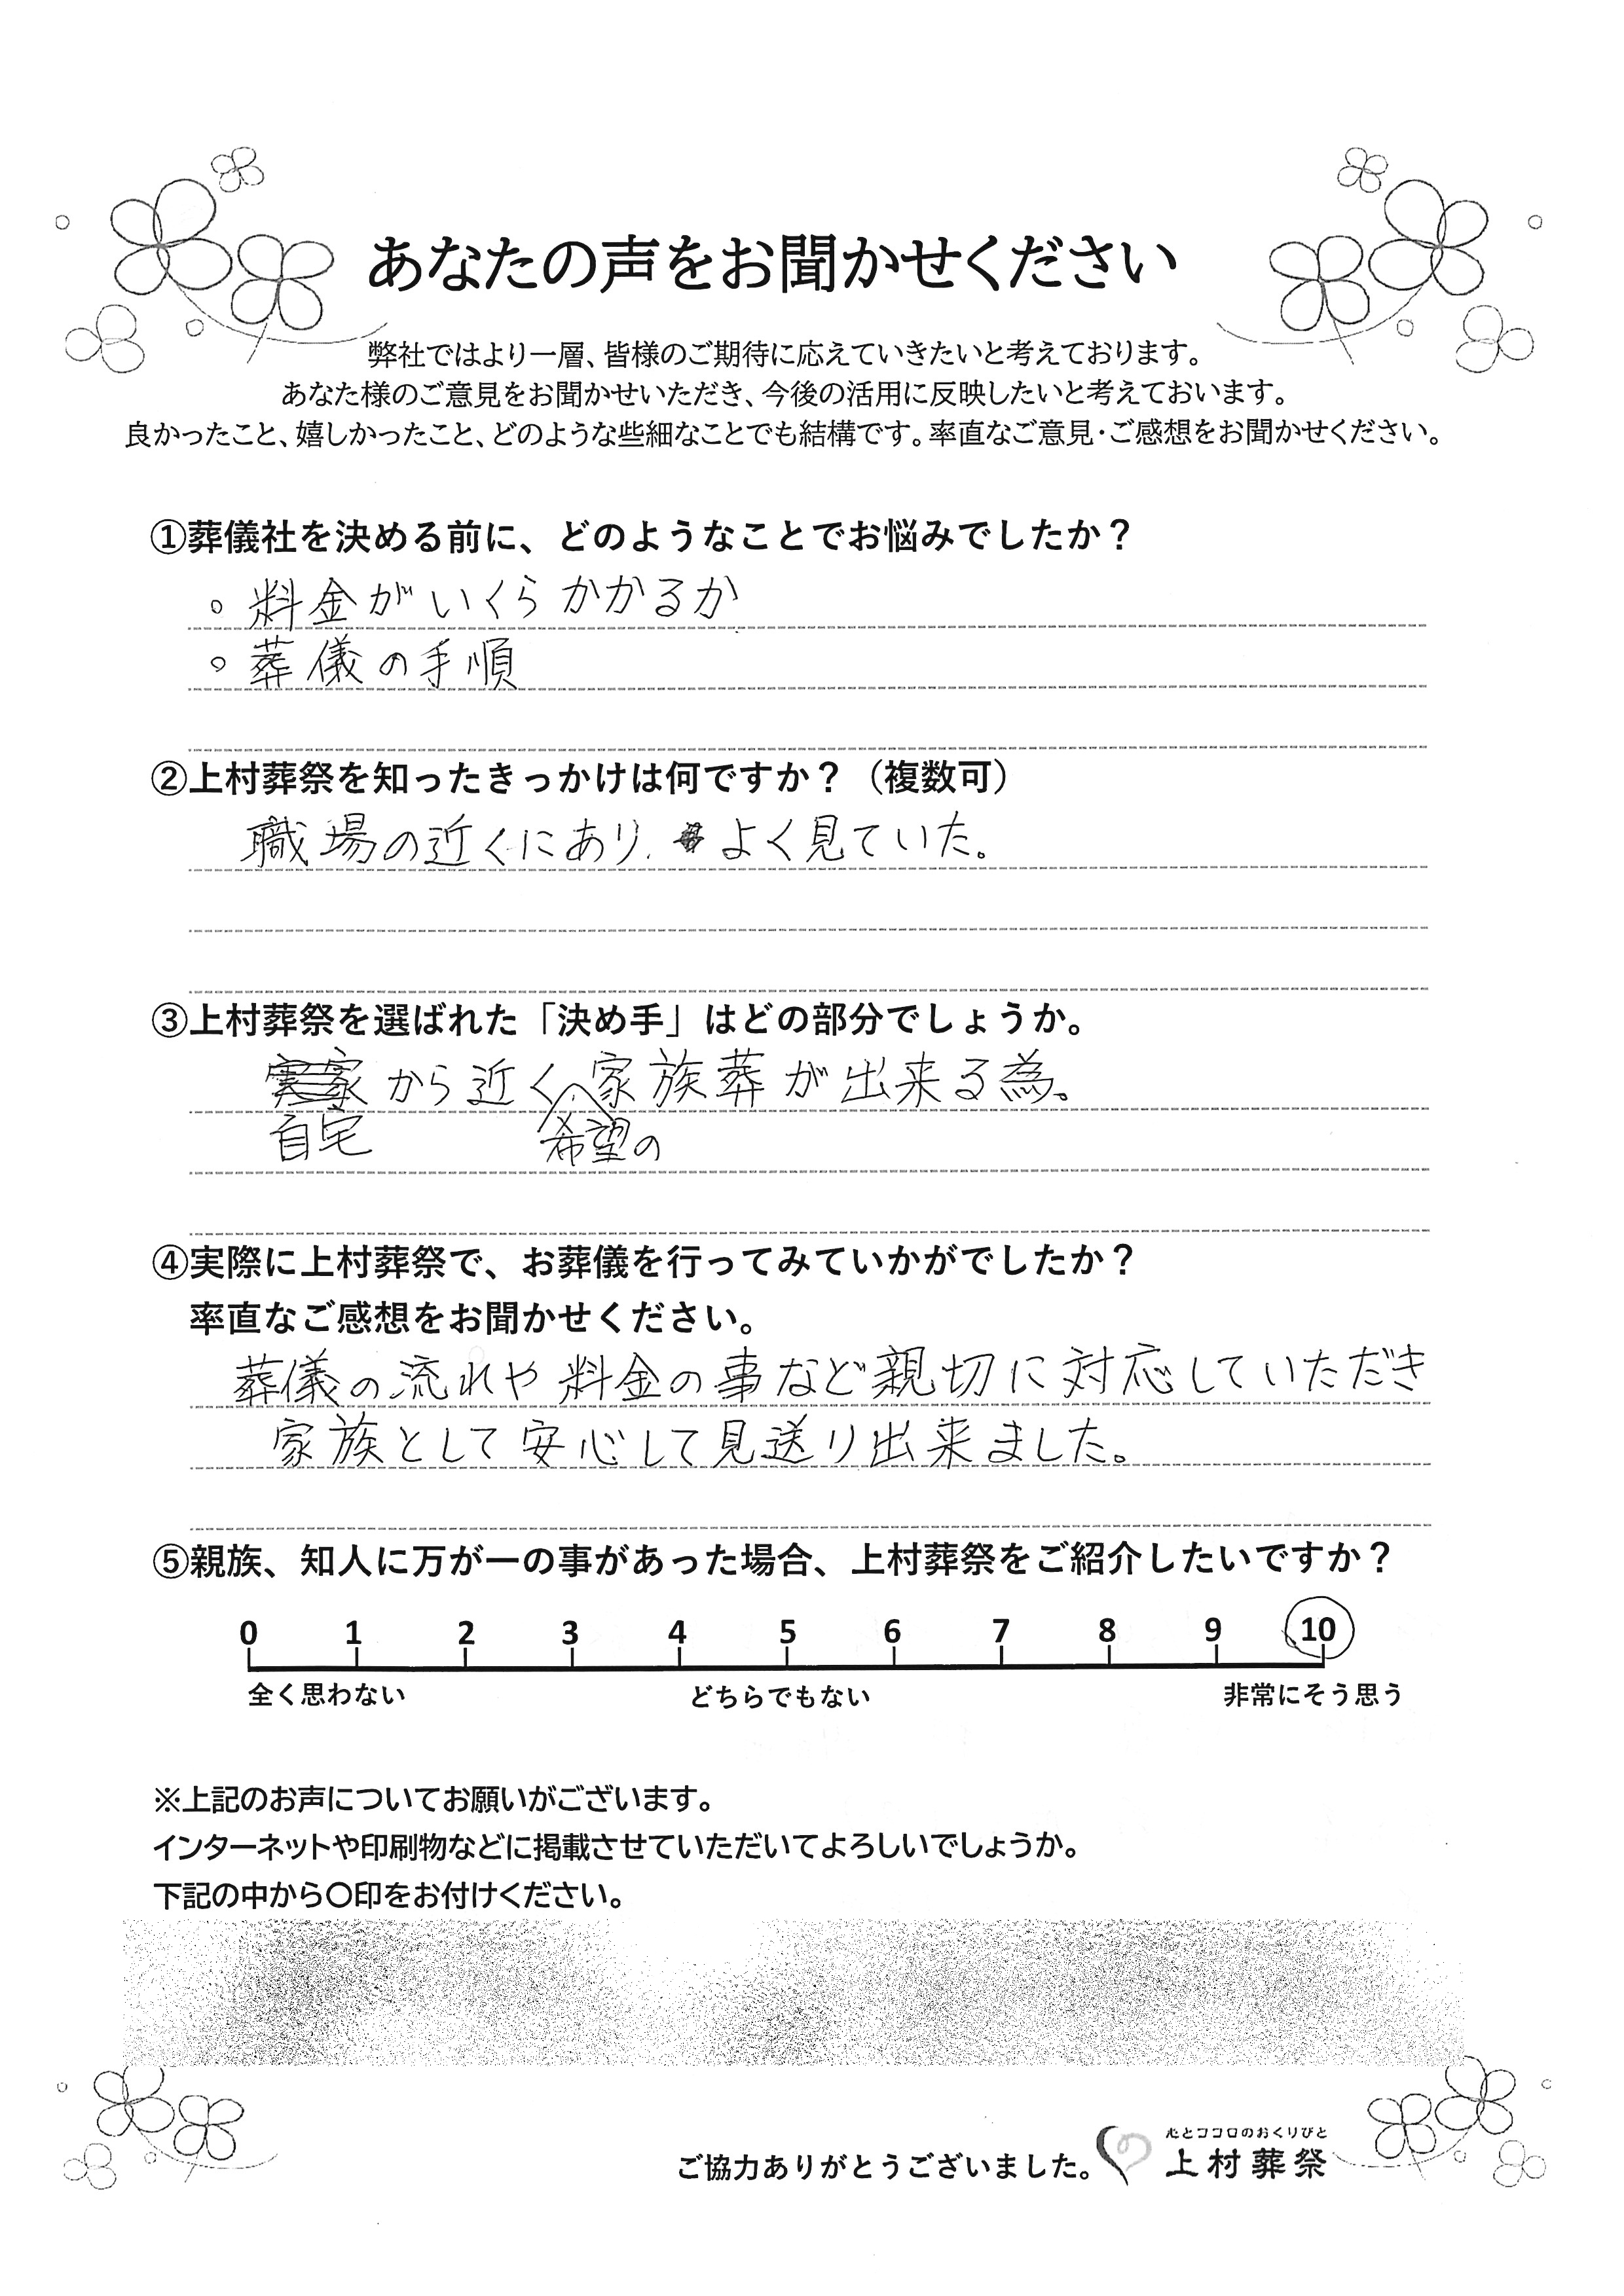 あなたの声をお聞かせください
弊社ではより一層、皆様のご期待に応えていきたいと考えております。
あなた様のご意見をお聞かせいただき、今後の活用に反映したいと考えておいます。
良かったこと、嬉しかったこと、どのような些細なことでも結構です。率直なご意見・ご感想をお聞かせください。
①葬儀社を決める前に、どのようなことでお悩みでしたか？
。料金がいくらかかるか
。葬儀の手順
②上村葬祭を知ったきっかけは何ですか？（複数可）
職場の近くにあり、よく見ていた。
③上村葬祭を選ばれた「決め手」はどの部分でしょうか。
実家から近く家族葬が出来る為。
自宅 希望の
④実際に上村葬祭で、お葬儀を行ってみていかがでしたか？
率直なご感想をお聞かせください。
葬儀の流れや料金の事など親切に対応していただき
家族として安心して見送り出来ました。
⑤親族、知人に万が一の事があった場合、上村葬祭をご紹介したいですか？
0 1 2 3 4 5 6 7 8 9 10
全く思わない どちらでもない 非常にそう思う
※上記のお声についてお願いがございます。
インターネットや印刷物などに掲載させていただいてよろしいでしょうか。
下記の中から〇印をお付けください。
心とココロのおくりびと
ご協力ありがとうございました。 上村葬祭